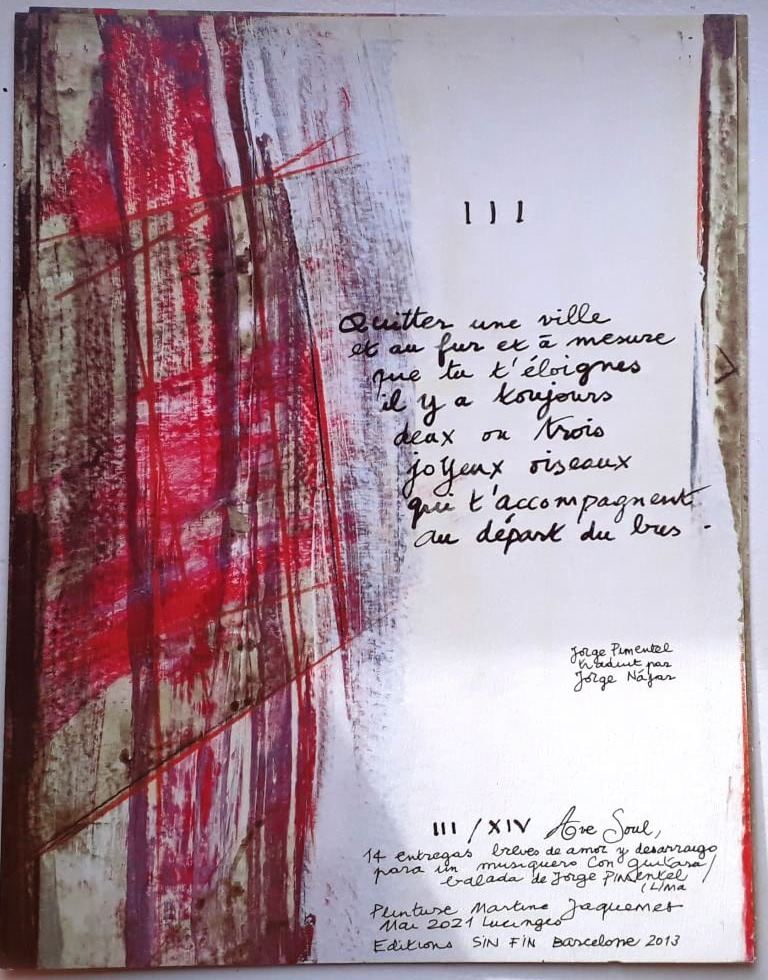 III
Quitter une ville
et au fur et à mesure
que tu t'éloignes
il y a toujours
deux ou trois
joyeux oiseaux
qui t'accompagnent
au départ du bus.
Jorge Pimentel
traduit par
Jorge Nájar
III / XIV Ave Soul,
14 entregas breves de amor y desarraigo
para un musiquero con guitarra/
balada de Jorge Pimentel
(Lima
Peinture Martine Jaquemet
Mai 2021 Lucinges
Editions SIN FIN Barcelone 2013